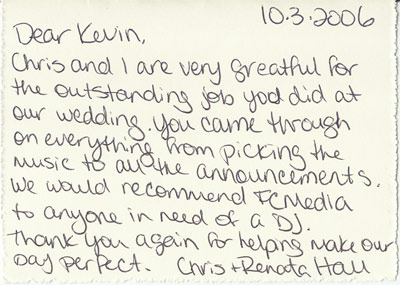 10.3.2006
Dear Kevin,
Chris and I are very greatful for
the outstanding job you did at
our wedding. You came through
on everything from picking the
music to all the announcements.
We would recommend FCMedia
to anyone in need of a DJ.
Thank you again for helping make our
Day perfect. Chris + Renata Hall